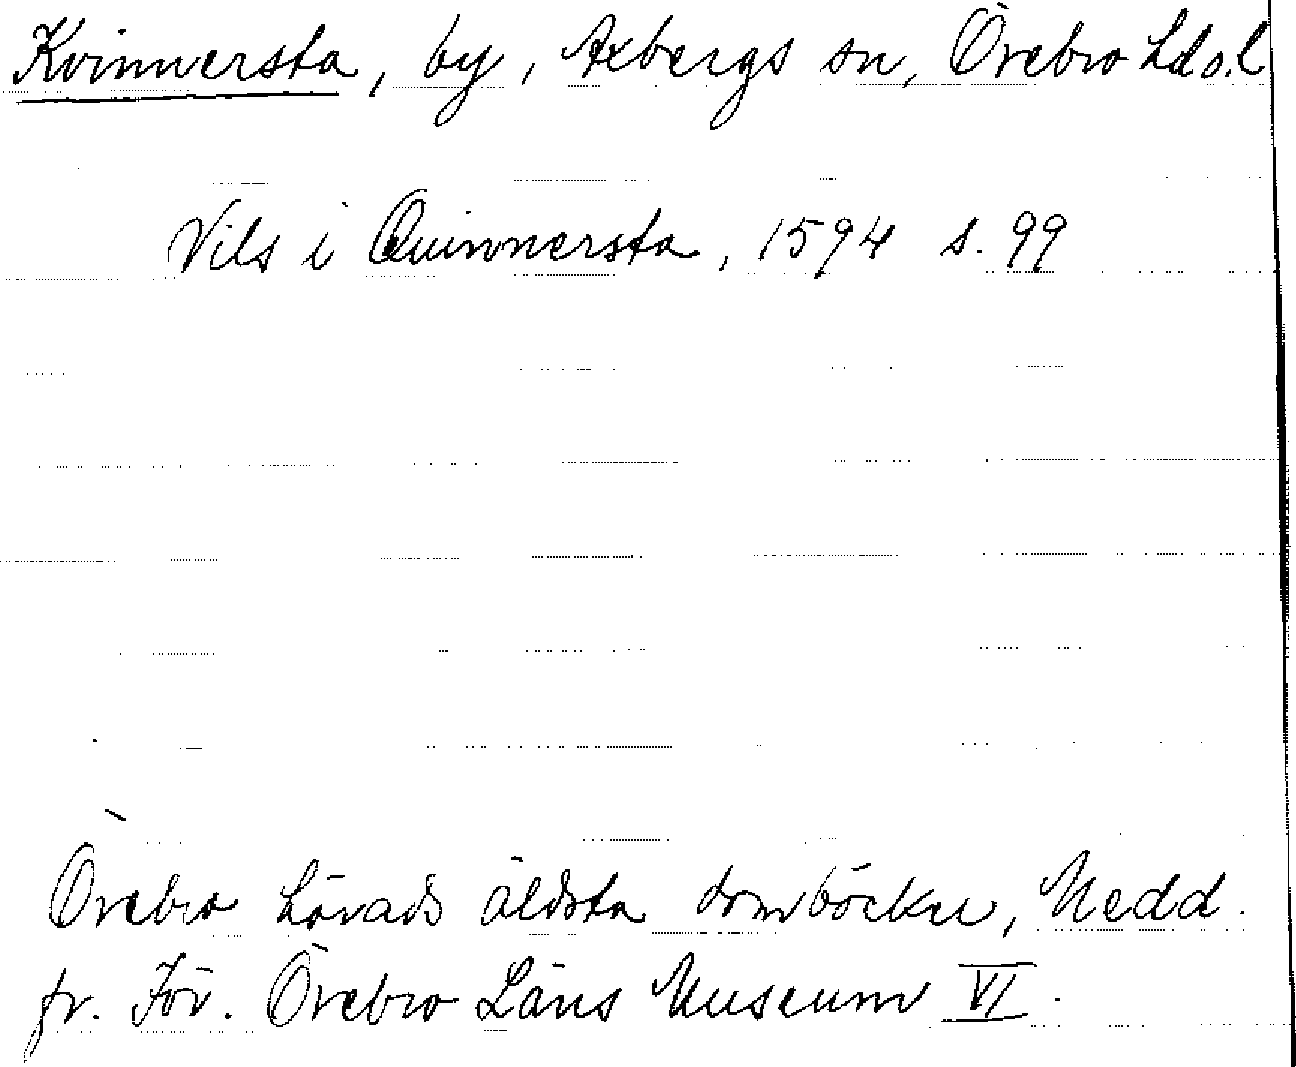 Kvinnersta, by, Axbergs sn, Örebro hd o. l
Nils i Quinnersta, 1594 s. 99
Örebro härads äldsta domböcker, Medd.
fr. För. Örebro Läns Museum VI.